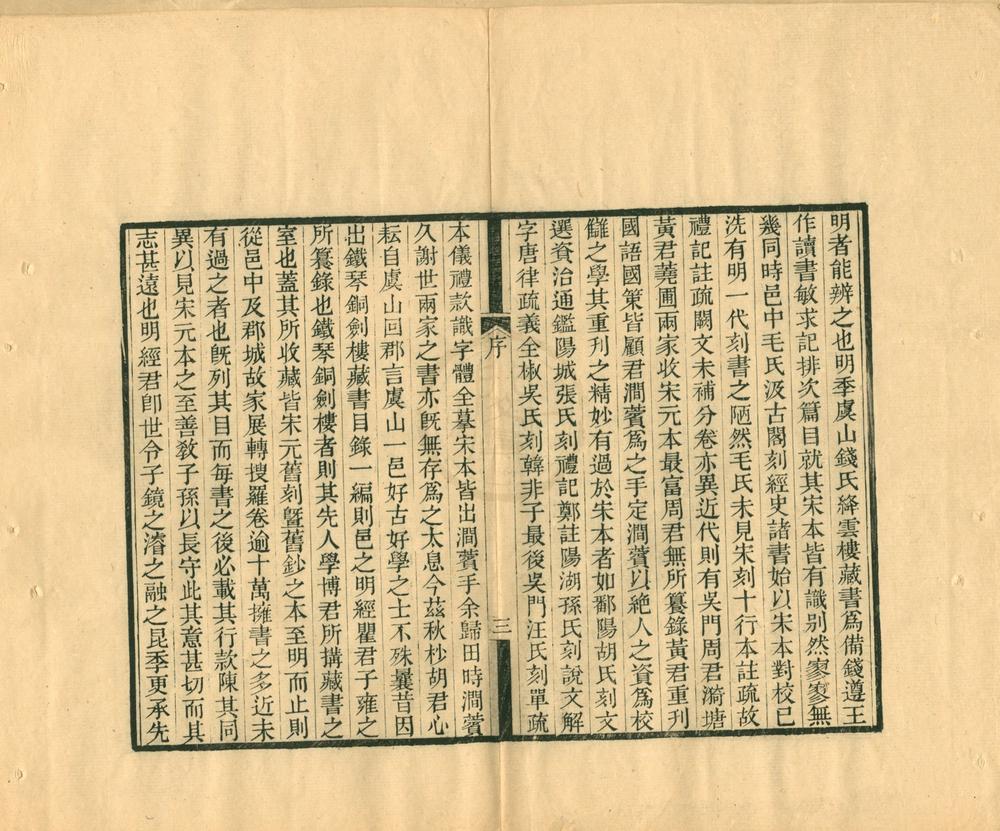 明者能辨之也明季虞山錢氏絳雲樓藏書爲備錢遵王
作讀書敏求記排次篇目就其宋本皆有識别然寥寥無
幾同時邑中毛氏汲古閣刻經史諸書始以宋本對校已
洗有明一代刻書之陋然毛氏未見宋刻十行本註疏故
禮記註疏闕文未補分卷亦異近代則有吳門周君漪塘
黃君蕘圃兩家收宋元本最富周君無所纂錄黃君重刊
國語國策皆顧君澗薲爲之手定澗薲以絶人之資爲校
讎之學其重刋之精妙有過於宋本者如鄱陽胡氏刻文
選資治通鑑陽城張氏刻禮記鄭註陽湖孫氏刻說文解
字唐律疏義全椒吳氏刻韓非子最後吳門汪氏刻單疏
序
三
本儀禮款識字體全摹宋本皆出澗薲手余歸田時澗薲
久謝世兩家之書亦旣無存爲之太息今茲秋杪胡君心
耘自虞山回郡言虞山一邑好古好學之士不殊曩昔因
出鐵琴銅劍樓藏書目錄一編則邑之明經瞿君子雍之
所纂錄也鐵琴銅劍樓者則其先人學博君所搆藏書之
室也蓋其所收藏皆宋元舊刻曁舊鈔之本至明而止則
從邑中及郡城故家展轉搜羅卷逾十萬擁書之多近未
有過之者也旣列其目而每書之後必載其行款陳其同
異以見宋元本之至善敎子孫以長守此其意甚切而其
志甚遠也明經君卽世令子鏡之濬之融之昆季更承先